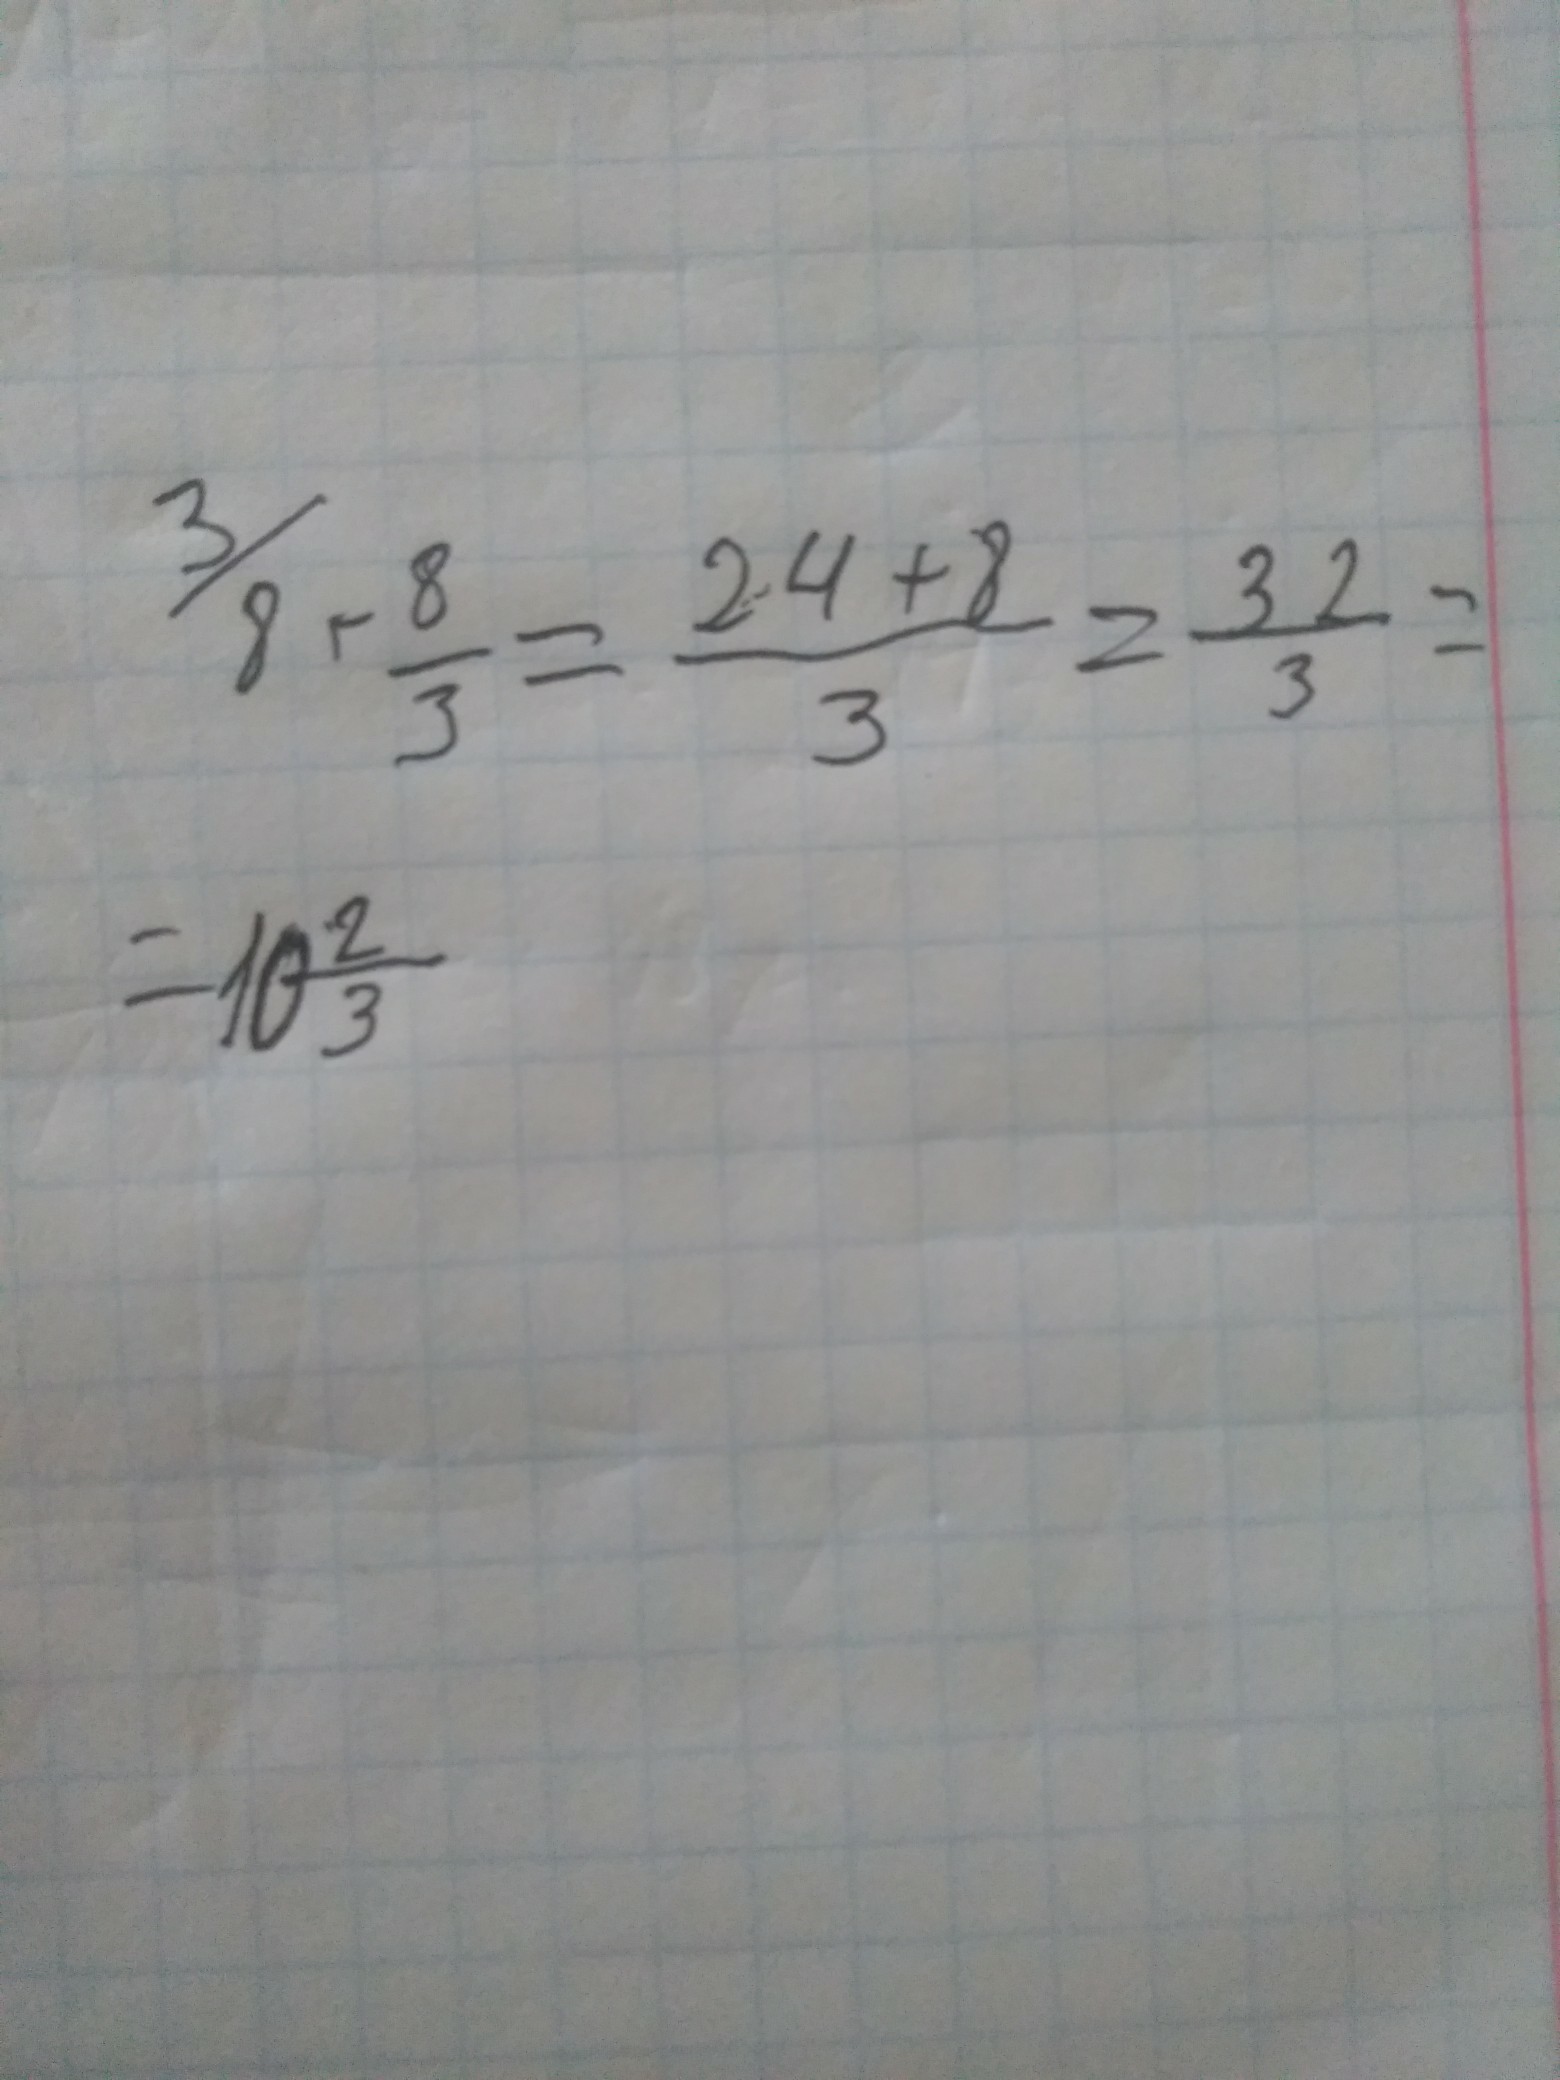 3/8 + 8/3 = 24+8/3 = 32/3 =
= 10 2/3